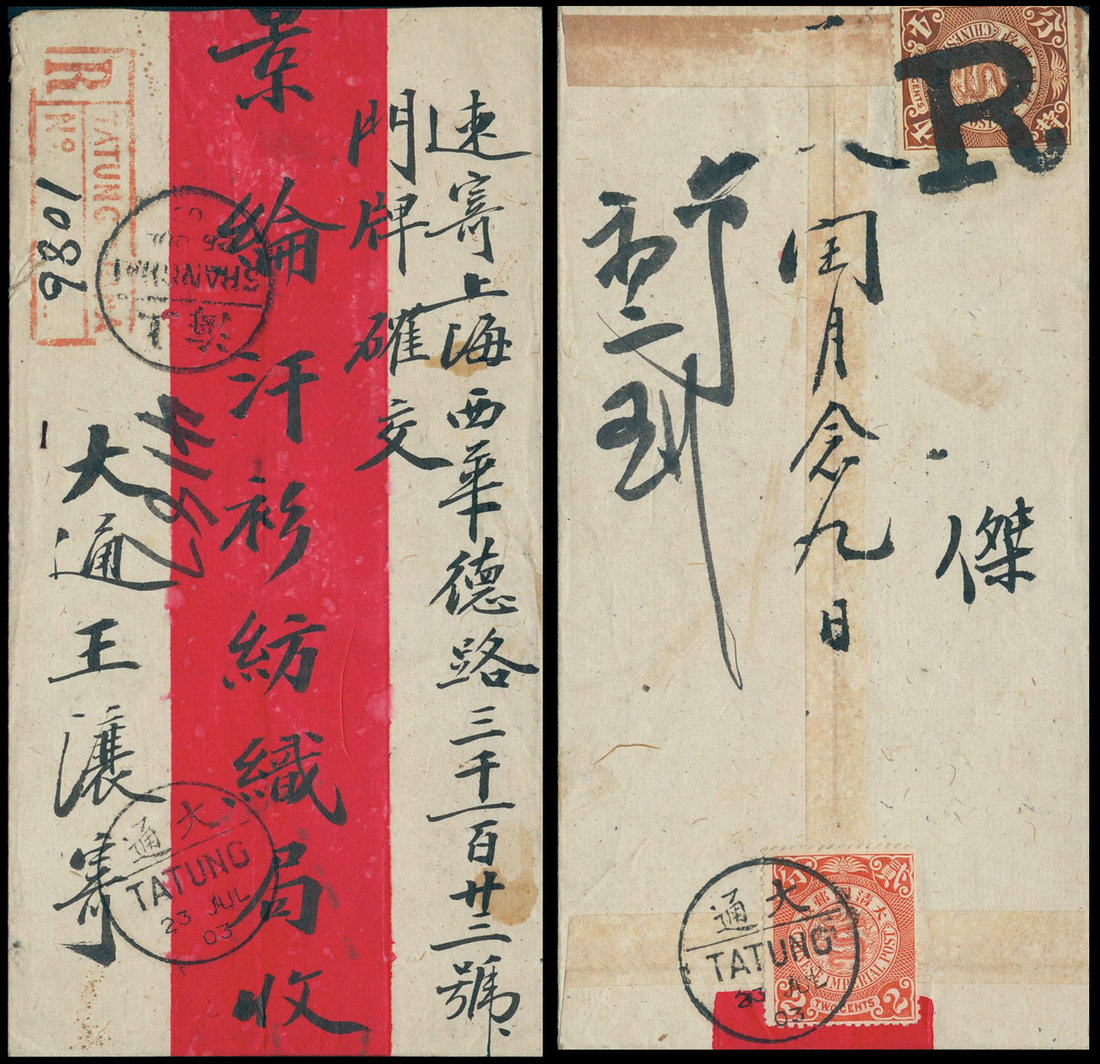 速寄上海西華德路三千一百廿三號
門牌確交
景綸汗衫紡織局收
大通王瀼寄
R
TATUNG
No
9801
上海
SHANGHAI
26 JUL
03
大通
TATUNG
23 JUL
03
4
分
CHINESE
CENTS
4
R.
傑
閏月念九日
大通
TATUNG
23 JUL
03
貳
分
大清國郵政
IMPERIAL POST
2
TWO CENTS
2